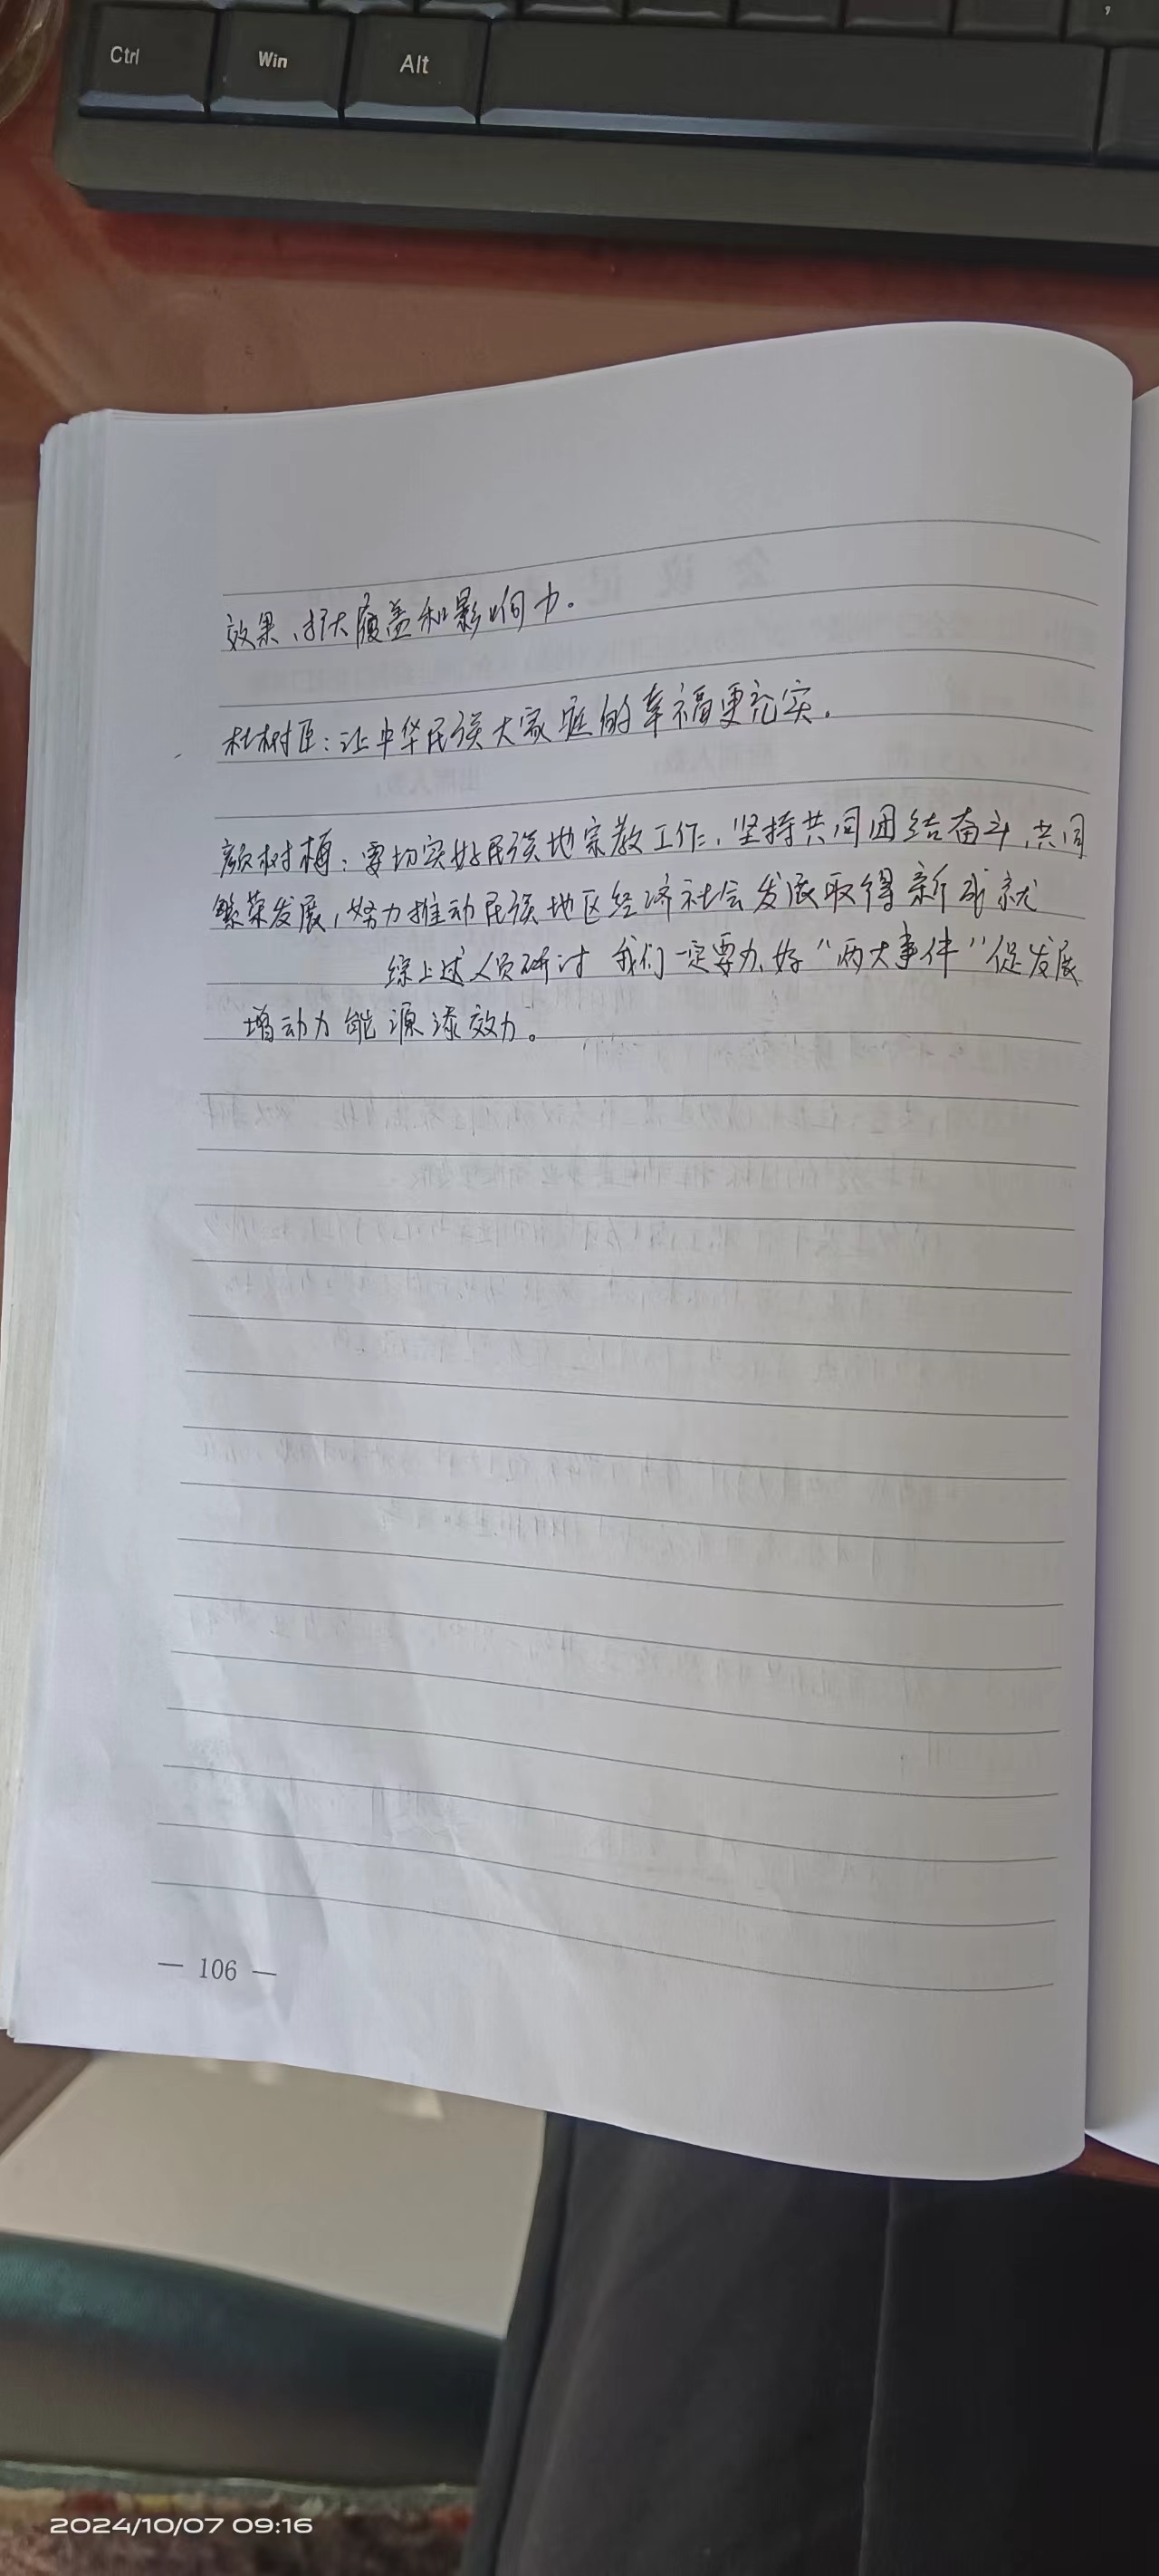 Ctrl Win Alt
效果、扩大覆盖和影响力。
杜树臣：让中华民族大家庭的幸福更充实。
颜树梅：要切实好民族地宗教工作，坚持共同团结奋斗，共同
繁荣发展，努力推动民族地区经济社会发展取得新成就
综上述人员研讨 我们一定要办好“两大事件”促发展
增动力能源添效力。
— 106 —
2024/10/07 09:16